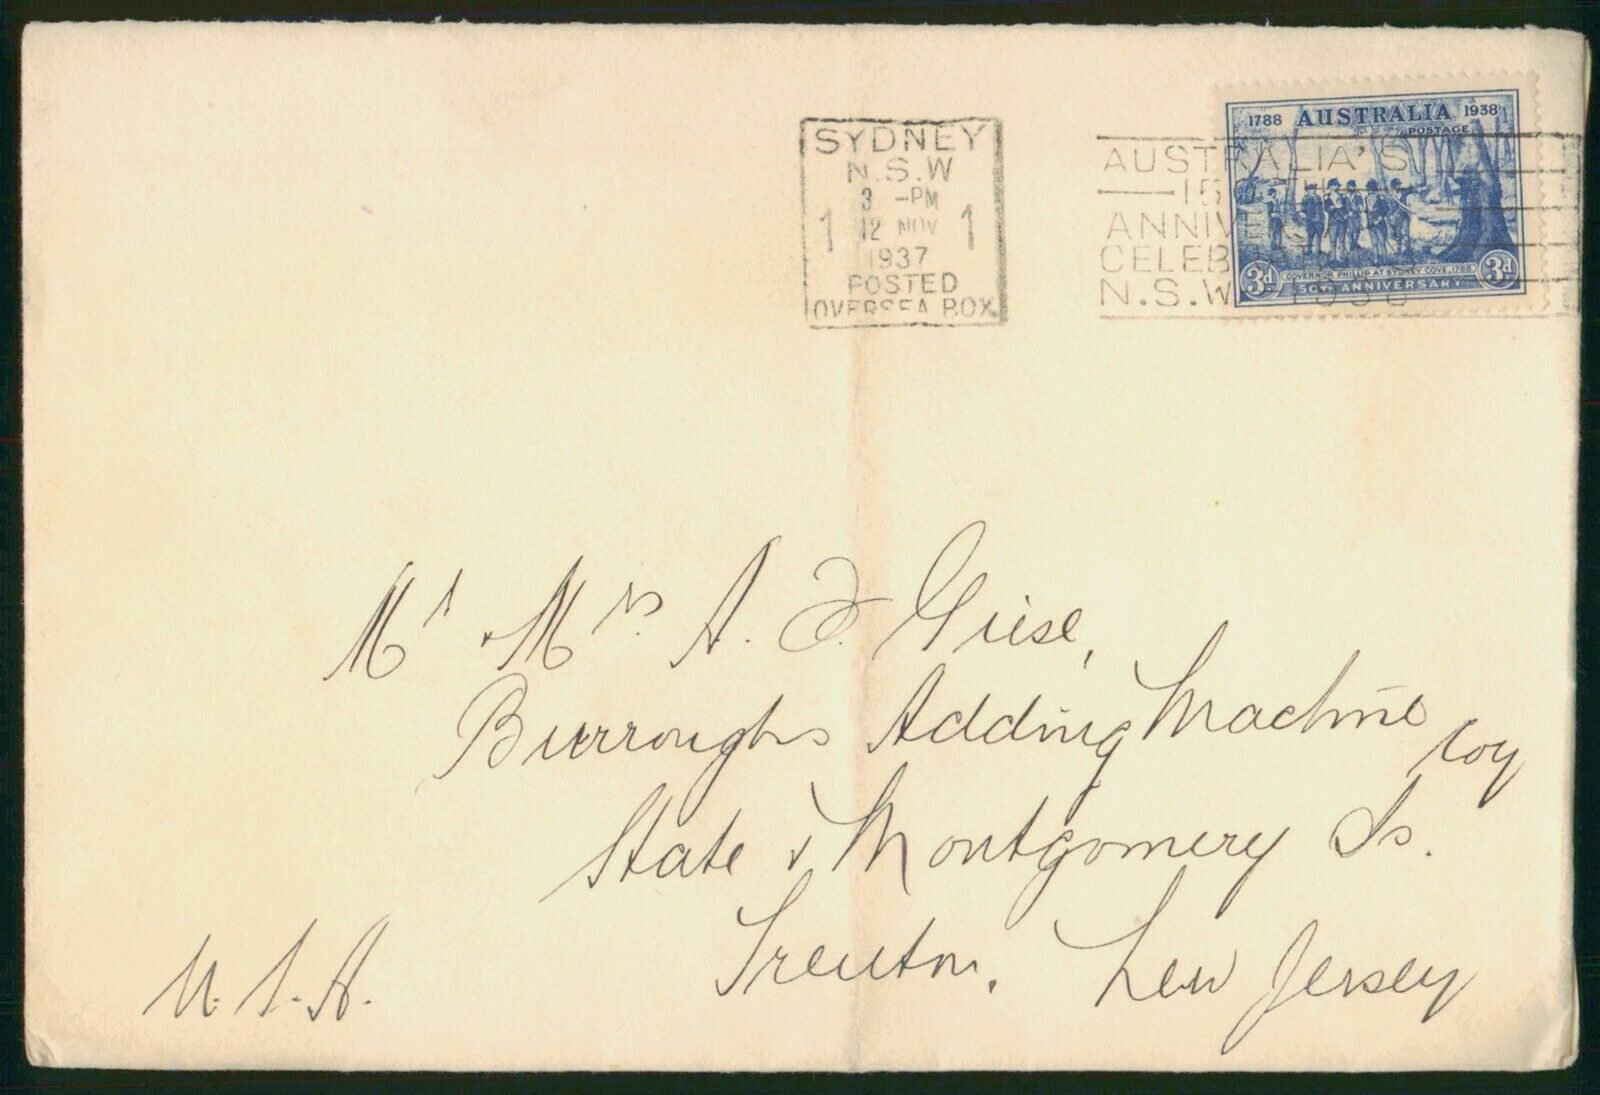 SYDNEY
N.S.W
3 -PM
1 12 NOV 1
1937
POSTED
OVERSEA BOX
AUSTRALIA'S
150TH
ANNIVERSARY
CELEBRATIONS
N.S.W. 1938
1788 AUSTRALIA 1938
POSTAGE
GOVERNOR PHILLIP AT SYDNEY COVE, 1788
3d 150TH ANNIVERSARY 3d
Mr & Mrs. A. J. Giese,
Burroughs Adding Machine Coy
State & Montgomery Ss.
Trenton, New Jersey
U.S.A.